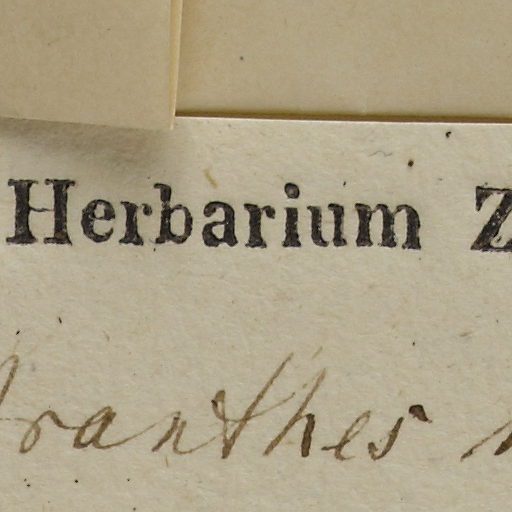 Herbarium Z
ranthes